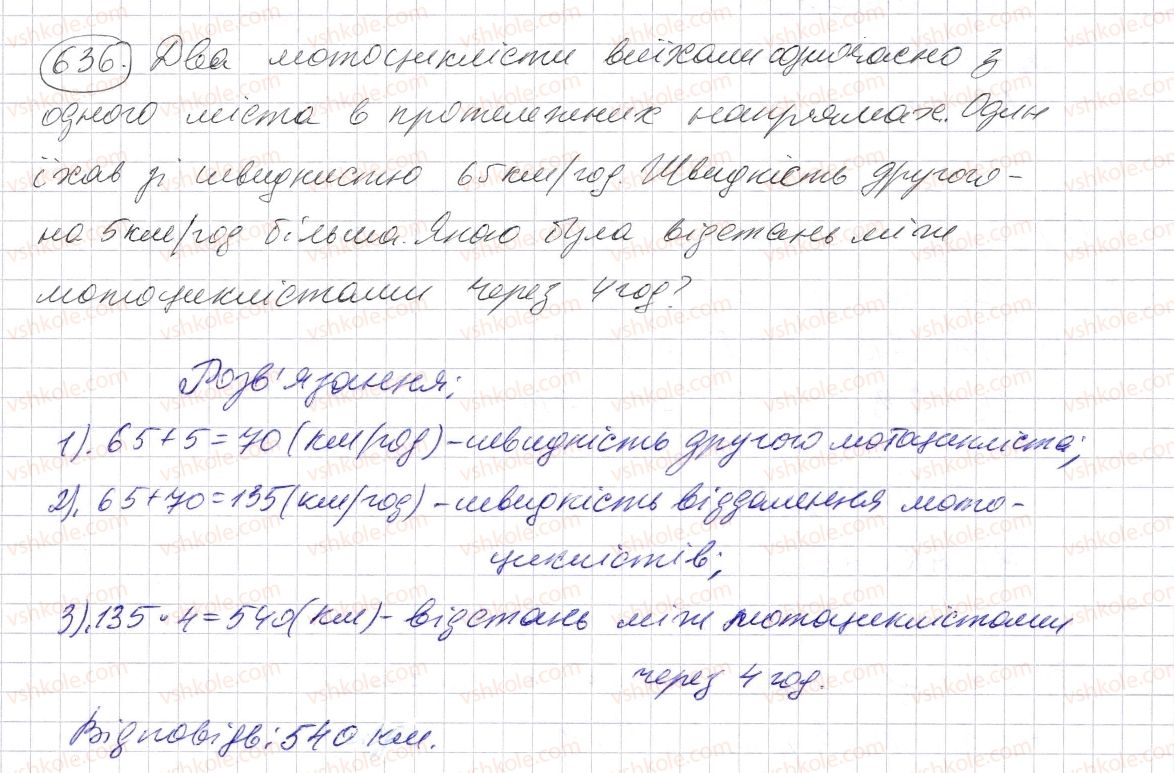 636. Два мотоциклісти виїхали одночасно з
одного міста в протилежних напрямах. Один
їхав зі швидкистю 65км/год. Швидкість другого-
на 5км/год більша. Якою була відстань між
мотоциклістами через 4 год?
Розв'язання:
1). 65+5=70 (км/год) - швидкість другого мотоцикліста;
2). 65+70=135(км/год) - швидкість віддалення мото-
циклістів;
3). 135·4=540(км) - відстань між мотоциклістами
через 4 год.
Відповідь: 540 км.